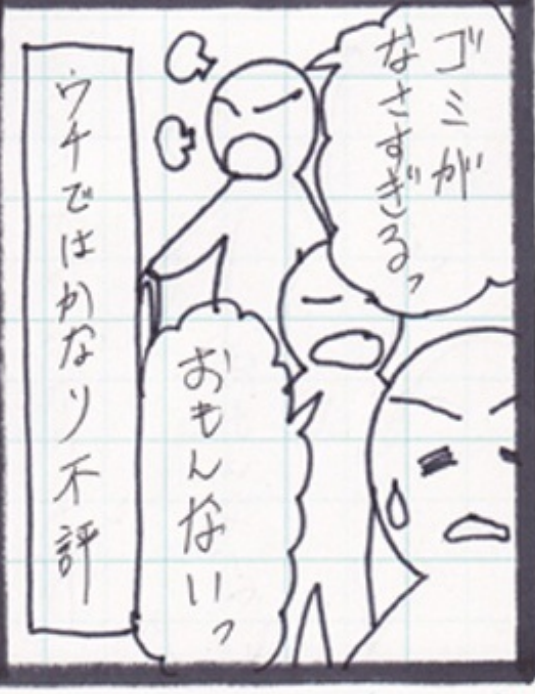 ゴミが
なさすぎるっ
おもんないっ
ウチではかなり不評